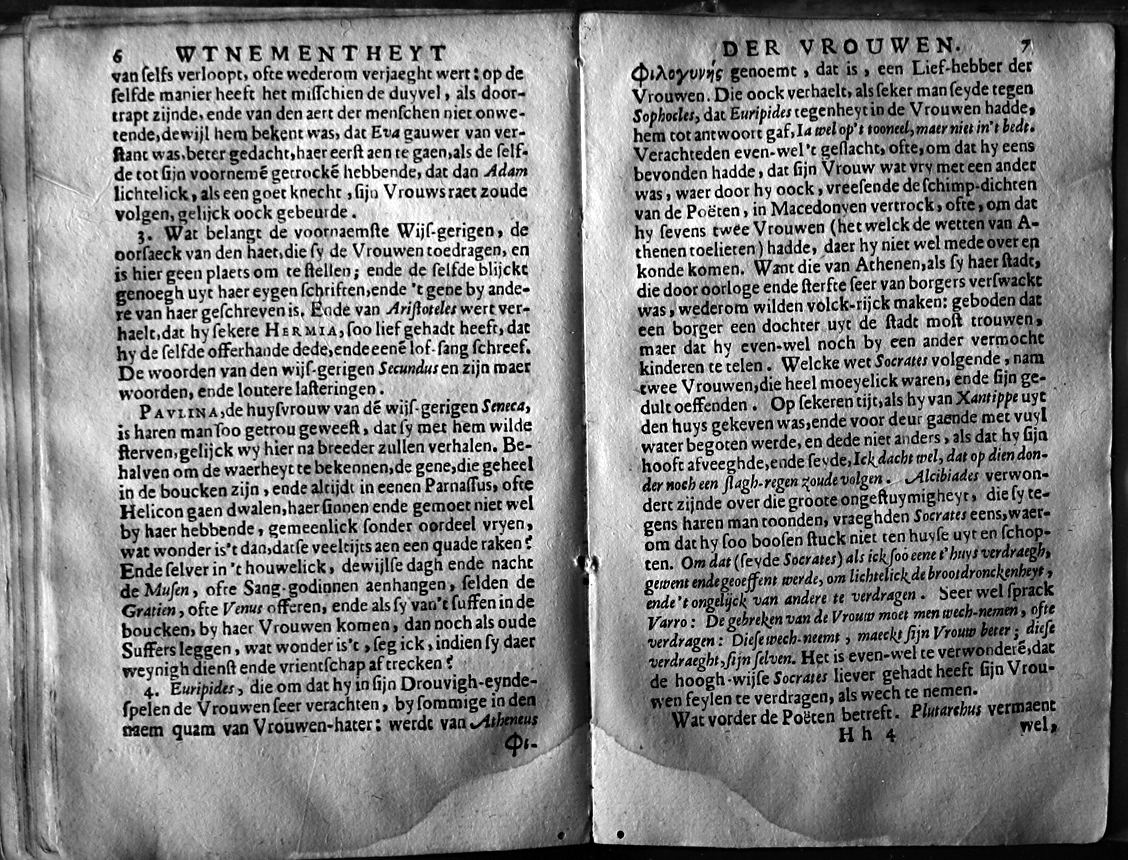 6 WTNEMENTHEYT
van ſelfs verloopt, ofte wederom verjaeght wert: op de
ſelfde manier heeft het miſſchien de duyvel, als door-
trapt zijnde, ende van den aert der menſchen niet onwe-
tende, dewijl hem bekent was, dat Eva gauwer van ver-
ſtant was, beter gedacht, haer eerſt aen te gaen, als de ſelf-
de tot ſijn voornemẽ getrockẽ hebbende, dat dan Adam
lichtelick, als een goet knecht, ſijn Vrouws raet zoude
volgen, gelijck oock gebeurde.
3. Wat belangt de voornaemſte Wijſ-gerigen, de
oorſaeck van den haet, die ſy de Vrouwen toedragen, en
is hier geen plaets om te ſtellen; ende de ſelfde blijckt
genoegh uyt haer eygen ſchriften, ende 't gene by ande-
re van haer geſchreven is. Ende van Ariſtoteles wert ver-
haelt, dat hy ſekere HERMIA, ſoo lief gehadt heeft, dat
hy de ſelfde offerhande dede, ende eenẽ lof-ſang ſchreef.
De woorden van den wijſ-gerigen Secundus en zijn maer
woorden, ende loutere laſteringen.
PAVLINA, de huyſvrouw van dẽ wijſ-gerigen Seneca,
is haren man ſoo getrou geweeſt, dat ſy met hem wilde
ſterven, gelijck wy hier na breeder zullen verhalen. Be-
halven om de waerheyt te bekennen, de gene, die geheel
in de boucken zijn, ende altijdt in eenen Parnaſſus, ofte
Helicon gaen dwalen, haer ſinnen ende gemoet niet wel
by haer hebbende, gemeenlick ſonder oordeel vryen,
wat wonder is't dan, datſe veeltijts aen een quade raken?
Ende ſelver in 't houwelick, dewijlſe dagh ende nacht
de Muſen, ofte Sang-godinnen aenhangen, ſelden de
Gratien, ofte Venus offeren, ende als ſy van't ſuffen in de
boucken, by haer Vrouwen komen, dan noch als oude
Suffers leggen, wat wonder is't, ſeg ick, indien ſy daer
weynigh dienſt ende vrientſchap af trecken?
4. Euripides, die om dat hy in ſijn Drouvigh-eynde-
ſpelen de Vrouwen ſeer verachten, by ſommige in den
naem quam van Vrouwen-hater: werdt van Atheneus
Φι-
DER VROUWEN. 7
Φιλογυνής genoemt, dat is, een Lief-hebber der
Vrouwen. Die oock verhaelt, als ſeker man ſeyde tegen
Sophocles, dat Euripides tegenheyt in de Vrouwen hadde,
hem tot antwoort gaf, Ia wel op't tooneel, maer niet in't bedt.
Verachteden even-wel 't geſlacht, ofte, om dat hy eens
bevonden hadde, dat ſijn Vrouw wat vry met een ander
was, waer door hy oock, vreeſende de ſchimp-dichten
van de Poëten, in Macedonyen vertrock, ofte, om dat
hy ſevens twee Vrouwen (het welck de wetten van A-
thenen toelieten) hadde, daer hy niet wel mede over en
konde komen. Want die van Athenen, als ſy haer ſtadt,
die door oorloge ende ſterfte ſeer van borgers verſwackt
was, wederom wilden volck-rijck maken: geboden dat
een borger een dochter uyt de ſtadt moſt trouwen,
maer dat hy even-wel noch by een ander vermocht
kinderen te telen. Welcke wet Socrates volgende, nam
twee Vrouwen, die heel moeyelick waren, ende ſijn ge-
dult oeffenden. Op ſekeren tijt, als hy van Xantippe uyt
den huys gekeven was, ende voor deur gaende met vuyl
water begoten werde, en dede niet anders, als dat hy ſijn
hooft afveeghde, ende ſeyde, Ick dacht wel, dat op dien don-
der noch een ſlagh-regen zoude volgen. Alcibiades verwon-
dert zijnde over die groote ongeſtuymigheyt, die ſy te-
gens haren man toonden, vraeghden Socrates eens, waer-
om dat hy ſoo booſen ſtuck niet ten huyſe uyt en ſchop-
ten. Om dat (ſeyde Socrates) als ick ſoo eene t'huys verdraegh,
gewent ende geoeffent werde, om lichtelick de brootdronckenheyt,
ende 't ongelijck van andere te verdragen. Seer wel ſprack
Varro: De gebreken van de Vrouw moet men wech-nemen, ofte
verdragen: Dieſe wech-neemt, maeckt ſijn Vrouw beter; dieſe
verdraeght, ſijn ſelven. Het is even-wel te verwonderẽ, dat
de hoogh-wijſe Socrates liever gehadt heeft ſijn Vrou-
wen feylen te verdragen, als wech te nemen.
Wat vorder de Poëten betreft. Plutarchus vermaent
Hh 4 wel,